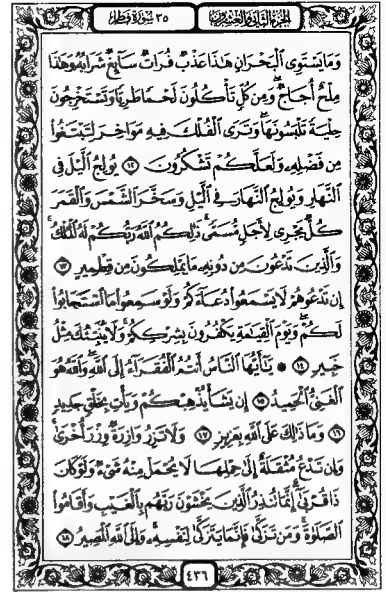 الجزء الثاني والعشرون ٣٥ سورة فاطر
وَمَا يَسْتَوِى ٱلْبَحْرَانِ هَـٰذَا عَذْبٌ فُرَاتٌ سَآئِغٌ شَرَابُهُۥ وَهَـٰذَا
مِلْحٌ أُجَاجٌ ۖ وَمِن كُلٍّ تَأْكُلُونَ لَحْمًا طَرِيًّا وَتَسْتَخْرِجُونَ
حِلْيَةً تَلْبَسُونَهَا ۖ وَتَرَى ٱلْفُلْكَ فِيهِ مَوَاخِرَ لِتَبْتَغُوا۟
مِن فَضْلِهِۦ وَلَعَلَّكُمْ تَشْكُرُونَ ١٢ يُولِجُ ٱلَّيْلَ فِى
ٱلنَّهَارِ وَيُولِجُ ٱلنَّهَارَ فِى ٱلَّيْلِ وَسَخَّرَ ٱلشَّمْسَ وَٱلْقَمَرَ
كُلٌّ يَجْرِى لِأَجَلٍ مُّسَمًّى ۚ ذَٰلِكُمُ ٱللَّهُ رَبُّكُمْ لَهُ ٱلْمُلْكُ ۚ
وَٱلَّذِينَ تَدْعُونَ مِن دُونِهِۦ مَا يَمْلِكُونَ مِن قِطْمِيرٍ ١٣
إِن تَدْعُوهُمْ لَا يَسْمَعُوا۟ دُعَآءَكُمْ وَلَوْ سَمِعُوا۟ مَا ٱسْتَجَابُوا۟
لَكُمْ ۖ وَيَوْمَ ٱلْقِيَـٰمَةِ يَكْفُرُونَ بِشِرْكِكُمْ ۚ وَلَا يُنَبِّئُكَ مِثْلُ
خَبِيرٍ ١٤ ۞ يَـٰٓأَيُّهَا ٱلنَّاسُ أَنتُمُ ٱلْفُقَرَآءُ إِلَى ٱللَّهِ ۖ وَٱللَّهُ هُوَ
ٱلْغَنِىُّ ٱلْحَمِيدُ ١٥ إِن يَشَأْ يُذْهِبْكُمْ وَيَأْتِ بِخَلْقٍ جَدِيدٍ
١٦ وَمَا ذَٰلِكَ عَلَى ٱللَّهِ بِعَزِيزٍ ١٧ وَلَا تَزِرُ وَازِرَةٌ وِزْرَ أُخْرَىٰ ۚ
وَإِن تَدْعُ مُثْقَلَةٌ إِلَىٰ حِمْلِهَا لَا يُحْمَلْ مِنْهُ شَىْءٌ وَلَوْ كَانَ
ذَا قُرْبَىٰٓ ۗ إِنَّمَا تُنذِرُ ٱلَّذِينَ يَخْشَوْنَ رَبَّهُم بِٱلْغَيْبِ وَأَقَامُوا۟
ٱلصَّلَوٰةَ ۚ وَمَن تَزَكَّىٰ فَإِنَّمَا يَتَزَكَّىٰ لِنَفْسِهِۦ ۚ وَإِلَى ٱللَّهِ ٱلْمَصِيرُ ١٨
٤٣٦